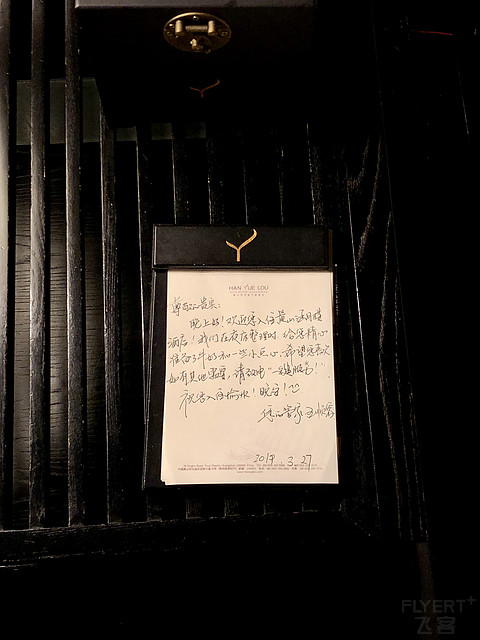 HAN YUE LOU
尊敬的贵宾：
晚上好！欢迎您入住黄山涵月楼
酒店！我们在夜床整理时，给您精心
准备了牛奶和一些小点心，希望您喜欢
如有其他需要，请致电“一键服务”！
祝您入住愉快！晚安！
您的管家
2019.3.27
FLYERT+
飞客